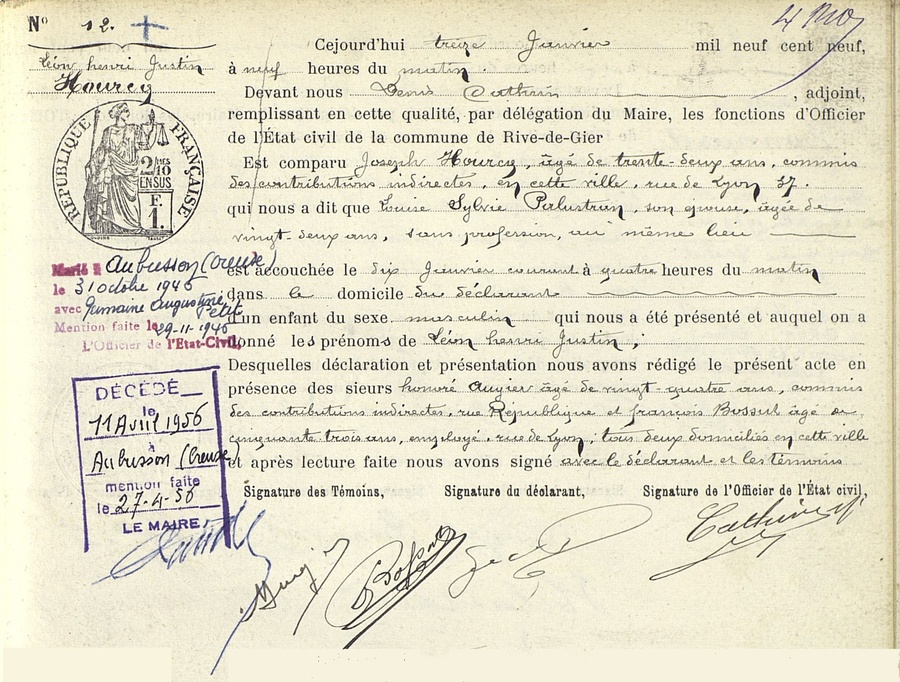 N° 12.
Léon henri Justin
Hourcq
RÉPUBLIQUE FRANÇAISE
2/10 MES
EN SUS
F.
1.
Cejourd'hui treize Janvier mil neuf cent neuf,
à neuf heures du matin.
Devant nous Denis Cathrin, adjoint,
remplissant en cette qualité, par délégation du Maire, les fonctions d'Officier
de l'État civil de la commune de Rive-de-Gier
Est comparu Joseph Hourcq, âgé de trente-deux ans, commis
des contributions indirectes, en cette ville, rue de Lyon 37.
qui nous a dit que Louise Sylvie Palustran, son épouse, âgée de
vingt-deux ans, sans profession, au même lieu
est accouchée le dix Janvier courant à quatre heures du matin
dans le domicile du déclarant
d'un enfant du sexe masculin qui nous a été présenté et auquel on a
donné les prénoms de Léon henri Justin ;
Desquelles déclaration et présentation nous avons rédigé le présent acte en
présence des sieurs honoré Augier âgé de vingt-quatre ans, commis
des contributions indirectes, rue République et françois Bossut âgé de
cinquante trois ans, employé, rue de Lyon, tous deux domiciliés en cette ville
et après lecture faite nous avons signé avec le déclarant et les témoins
Signature des Témoins, Signature du déclarant, Signature de l'Officier de l'État civil,
Marié à Aubusson (Creuse)
le 31 octobre 1946
avec Germaine Augustine
Petit
Mention faite le 29-11-1946
L'Officier de l'Etat-Civil,
DÉCÉDÉ
le
11 Avril 1956
à
Aubusson (Creuse)
mention faite
le 27-4-56
LE MAIRE,